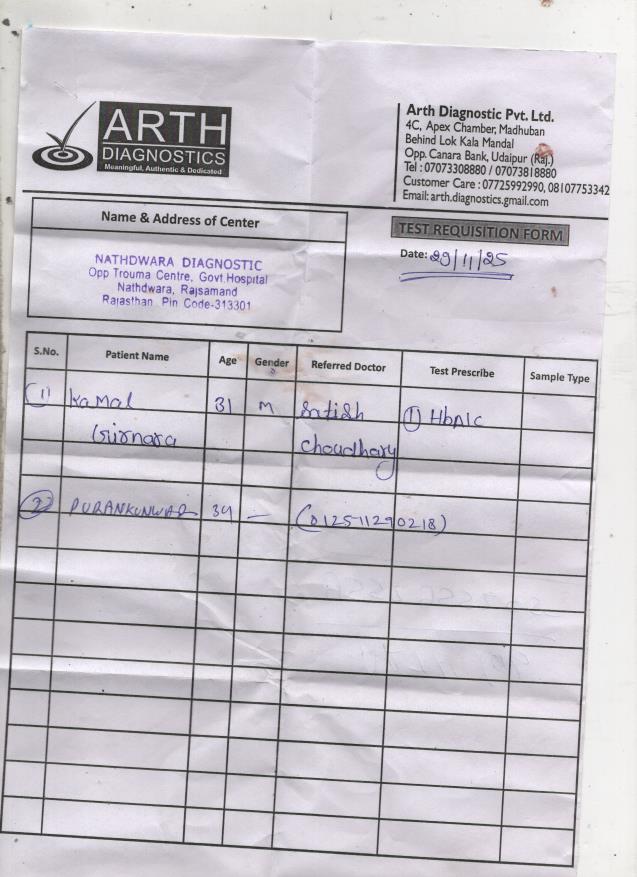 ARTH
DIAGNOSTICS
Meaningful, Authentic & Dedicated
Arth Diagnostic Pvt. Ltd.
4C, Apex Chamber, Madhuban
Behind Lok Kala Mandal
Opp. Canara Bank, Udaipur (Raj.)
Tel : 07073308880 / 07073818880
Customer Care : 07725992990, 08107753342
Email: arth.diagnostics.gmail.com
Name & Address of Center
NATHDWARA DIAGNOSTIC
Opp Trouma Centre, Govt.Hospital
Nathdwara, Rajsamand
Rajasthan Pin Code-313301
TEST REQUISITION FORM
Date: 29/11/25
S.No. Patient Name Age Gender Referred Doctor Test Prescribe Sample Type
(1) Kamal 31 M Satish (1) HbA1c
Choudhary
(2) PURANKUNWAR 34 — (012511290218)